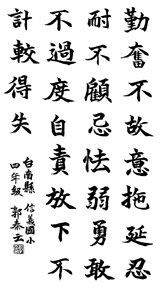 勤奮不故意拖延忍
耐不顧忌怯弱勇敢
不過度自責放下不
計較得失
台南縣信義國小
四年級 郭泰云